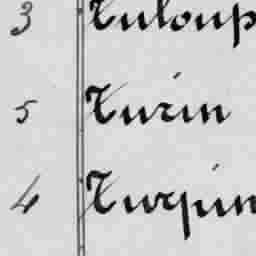 3 Tuloup
5 Turin
4 Turpin